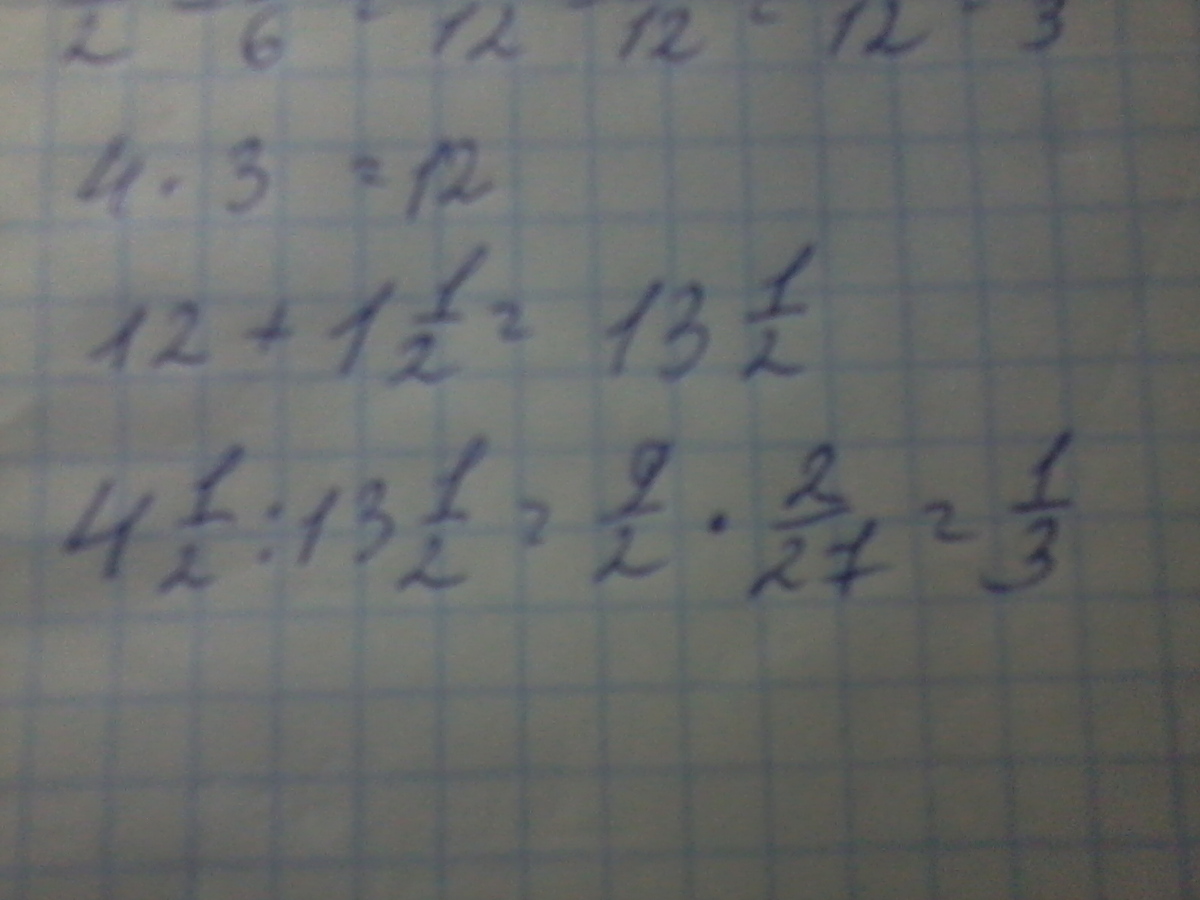 2 6 = 12 12 = 12 = 3
4 · 3 = 12
12 + 1 1/2 = 13 1/2
4 1/2 : 13 1/2 = 9/2 · 2/27 = 1/3